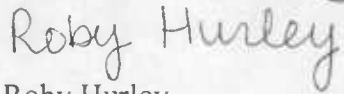 Roby Hurley
Roby Hurley